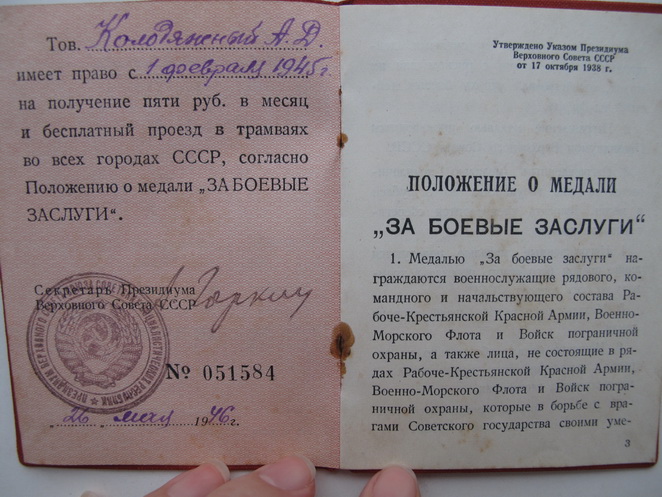 Тов. Колодяжный А. Д.
имеет право с 1 февраля 1945 г.
на получение пяти руб. в месяц
и бесплатный проезд в трамваях
во всех городах СССР, согласно
Положению о медали „ЗА БОЕВЫЕ
ЗАСЛУГИ“.
Секретарь Президиума
Верховного Совета СССР
А. Горкин
№ 051584
26 мая 1946 г.
Утверждено Указом Президиума
Верховного Совета СССР
от 17 октября 1938 г.
ПОЛОЖЕНИЕ О МЕДАЛИ
„ЗА БОЕВЫЕ ЗАСЛУГИ“
1. Медалью „За боевые заслуги“ на-
граждаются военнослужащие рядового, ко-
мандного и начальствующего состава Ра-
боче-Крестьянской Красной Армии, Военно-
Морского Флота и Войск пограничной
охраны, а также лица, не состоящие в ря-
дах Рабоче-Крестьянской Красной Армии,
Военно-Морского Флота и Войск погра-
ничной охраны, которые в борьбе с вра-
гами Советского государства своими уме-
3